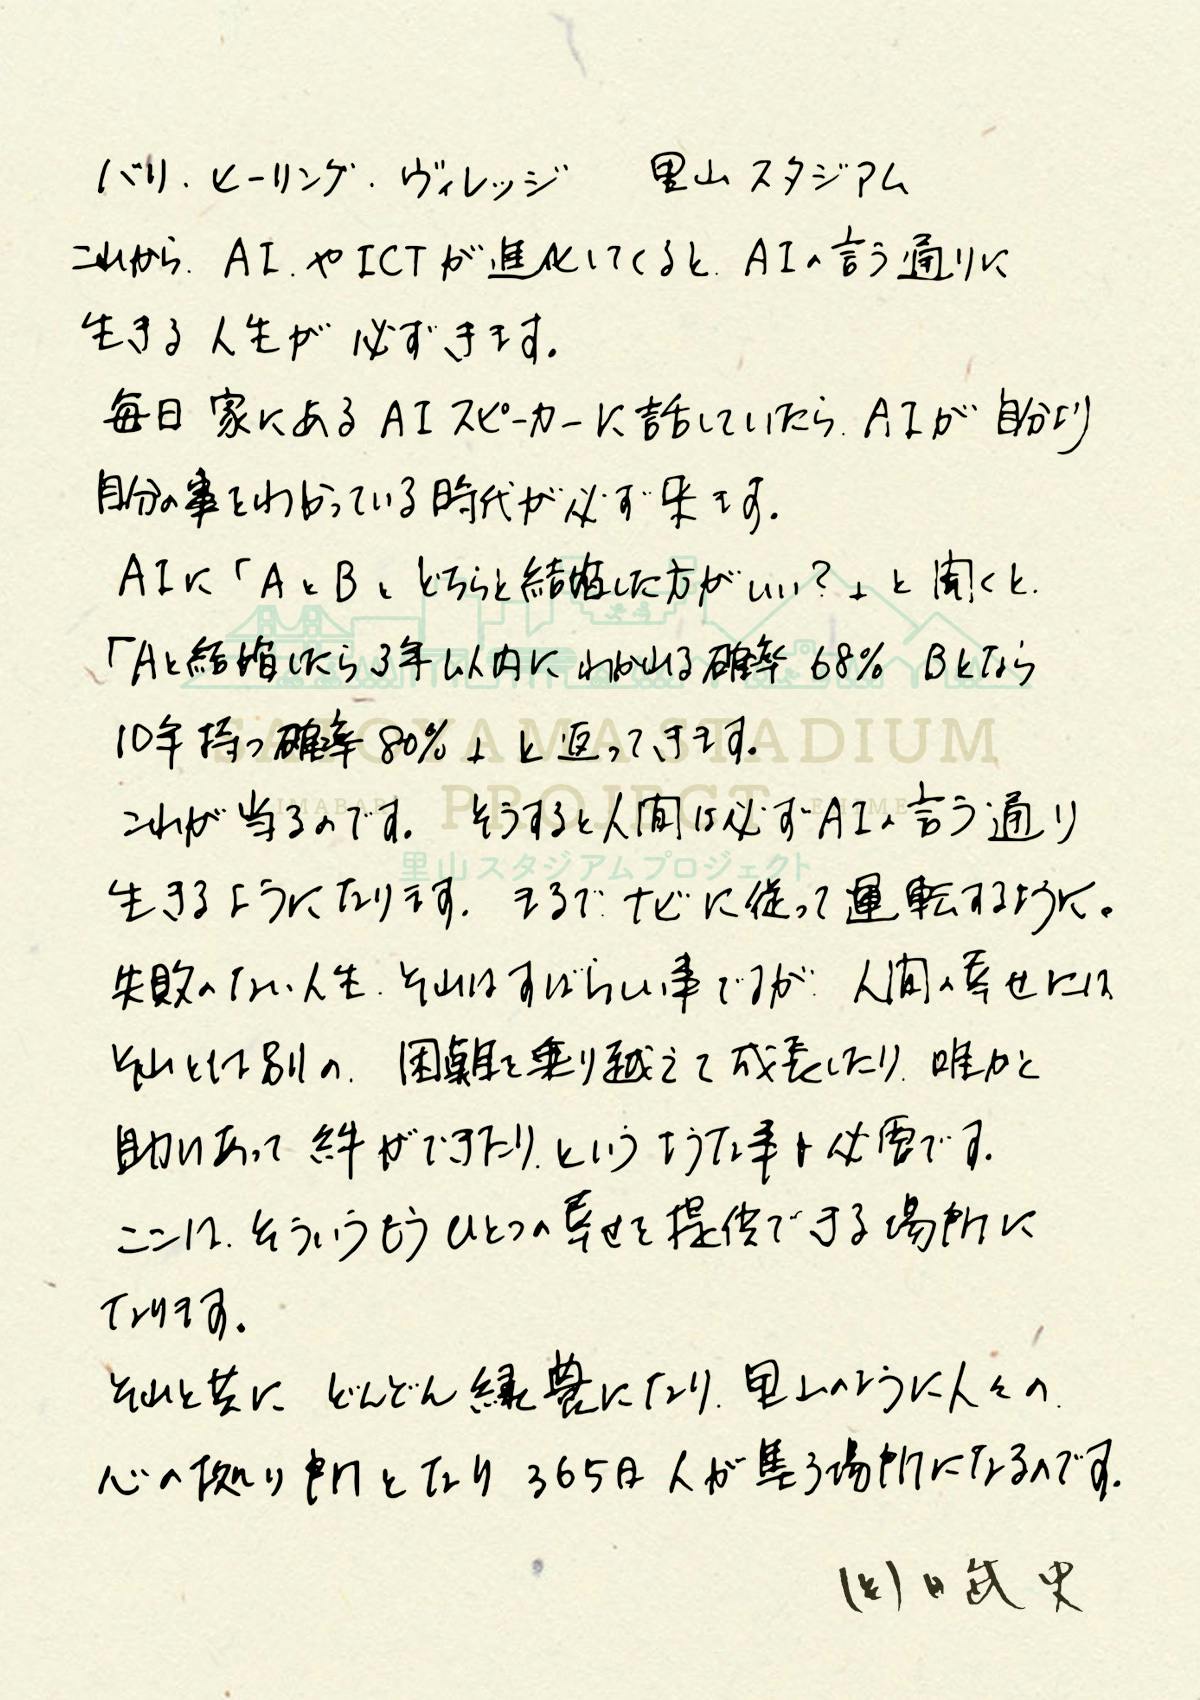 バリ・ヒーリング・ヴィレッジ　里山スタジアム
これから、AI、やICTが進化してくると、AIの言う通りに
生きる人生が必ずきます。
毎日家にあるAIスピーカーに話していたら、AIが自分より
自分の事をわかっている時代が必ず来ます。
AIに「AとB、どちらと結婚した方がいい?」と聞くと、
「Aと結婚したら3年以内にわかれる確率68% Bとなら
10年持つ確率80%」と返ってきます。
SATOYAMA STADIUM
PROJECT
IMABARI
EHIME
これが当るのです。そうすると人間は必ずAIの言う通り
里山スタジアムプロジェクト
生きるようになります。まるでナビに従って運転するように。
失敗のない人生、それはすばらしい事ですが、人間の幸せには
それとは別の、困難を乗り越えて成長したり、誰かと
助けあって絆ができたり、というような事も必要です。
ここは、そういうもうひとつの幸せを提供できる場所に
なります。
それと共に どんどん緑豊になり、里山のように人々の
心の拠り所となり365日人が集る場所になるのです。
岡田武史